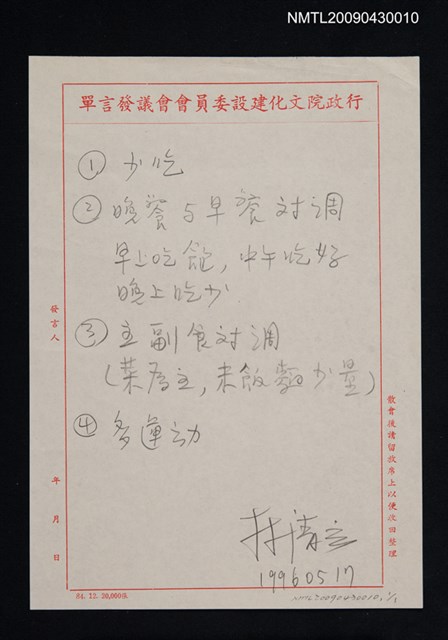 NMTL20090430010
單言發議會會員委設建化文院政行
① 少吃
② 晚餐与早餐对调
早上吃飽,中午吃好
晚上吃少
③ 主副食对调
(菜為主,米飯麵少量)
④ 多運动
發言人
年月日
散會後請留放桌上以便收回整理
林清玄
19960517
84.12.20,000張
NMTL20090430010, 1/1